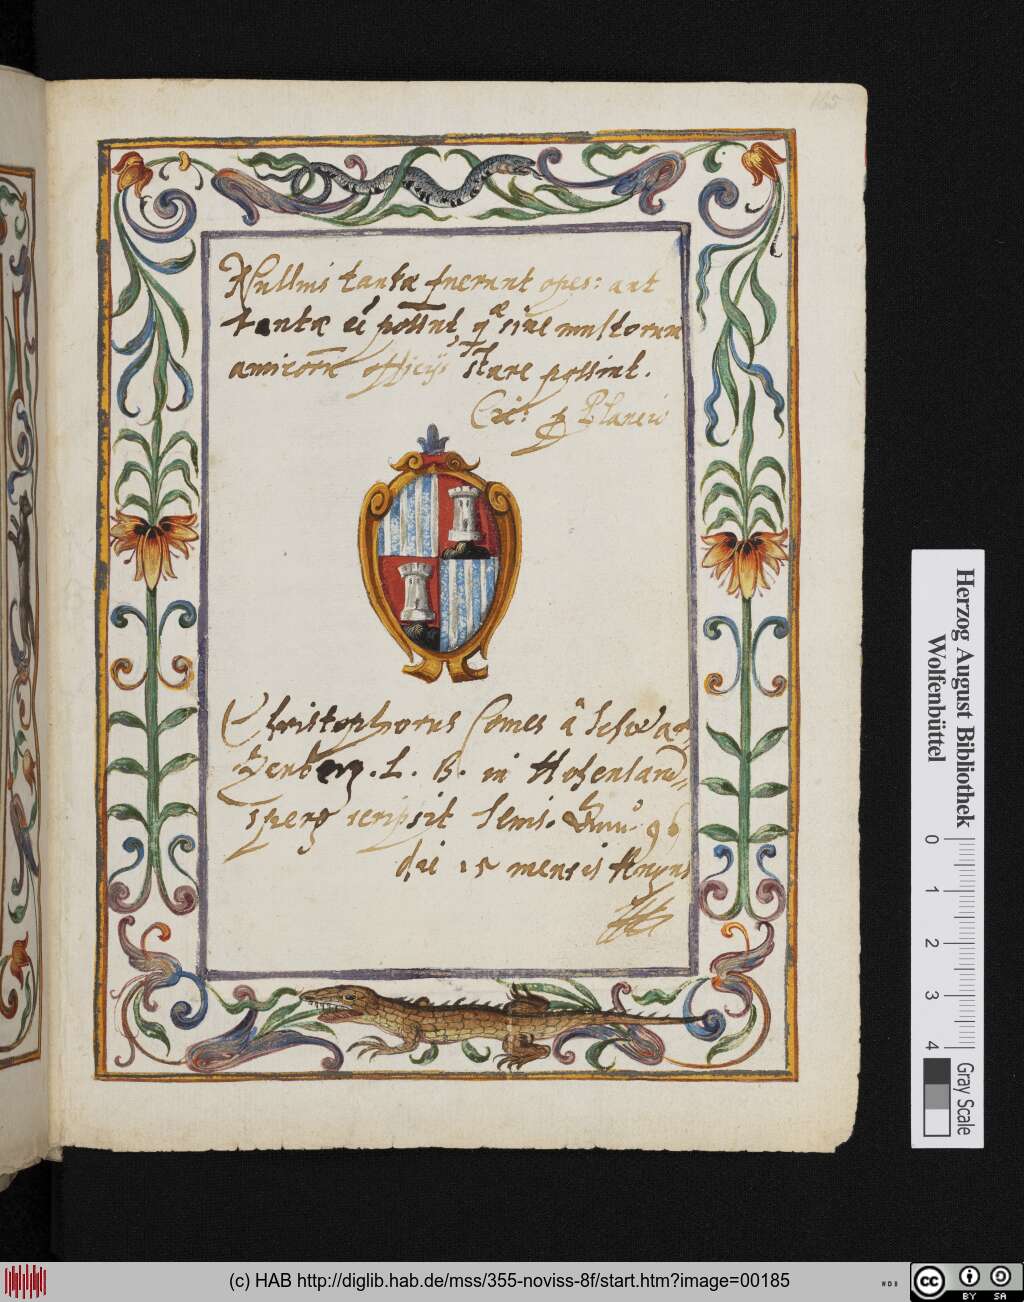 165
Nullius tantæ fuerunt opes: aut
tantæ eē possūt, q̄ sine multorum
amicorū officijs stare possint.
Cic: ꝓ Plancio
Christophorus Comes à Schwar-
zenberg. L. B. in Hohenland-
sperg scripsit Senis. Anno 96
die 15 mensis
Herzog August Bibliothek
Wolfenbüttel
0 1 2 3 4
Gray Scale
(c) HAB http://diglib.hab.de/mss/355-noviss-8f/start.htm?image=00185
WDB
cc BY SA